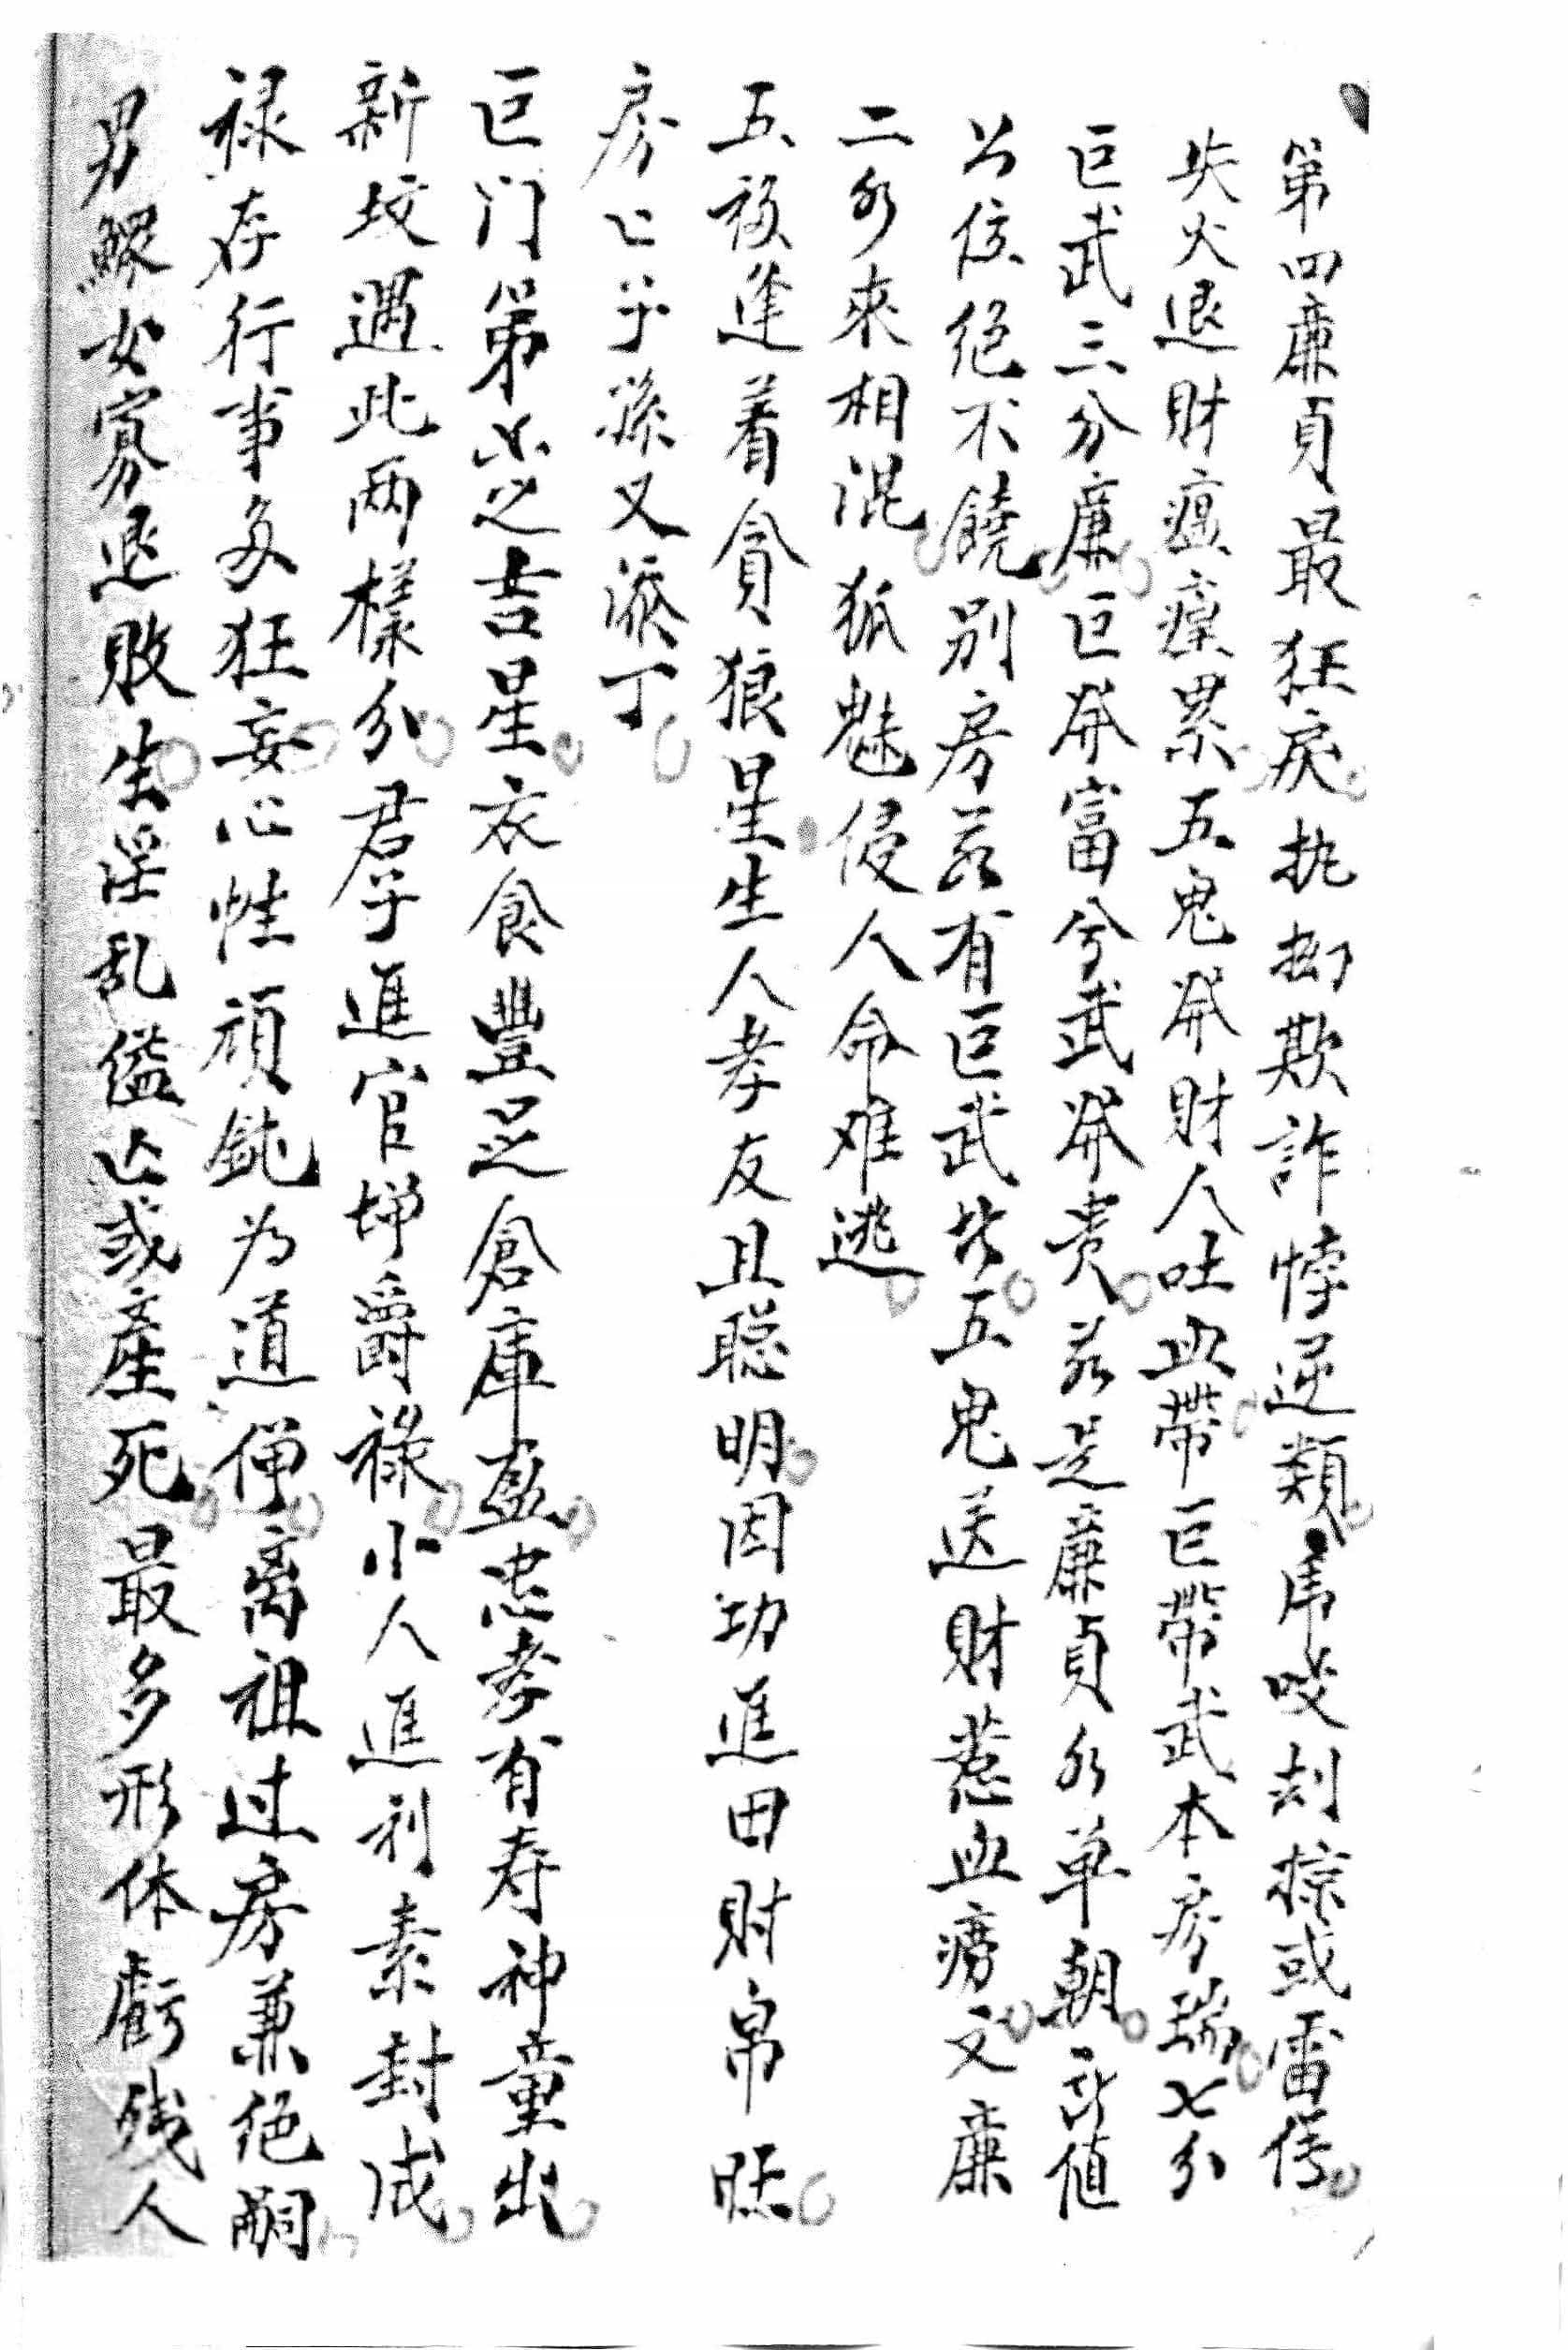 第四廉貞最狂戾执拗欺詐悖逆類虎咬刦掠或雷
失火退財瘟㾮累五鬼発財人吐血帶巨帶武本房瑞七分
巨武三分廉巨発富兮武発贵若是廉貞水单朝值
公位絕不饒别房若有巨武皆五鬼送財惹血痨文廉
二水來相混狐魅侵人命难逃
五祾逢着貪狼星生人孝友且聪明因功進田財帛旺
房房子孫又添丁
巨门第之吉星衣食豐足倉庫盈忠孝有寿神童出
新坟遇此两樣分君子進官增爵禄小人進利素封成
禄存行事多狂妄心性頑鈍为道僧离祖过房兼绝嗣
男鰥女寡退敗生淫乱缢亡或產死最多形体虧残人